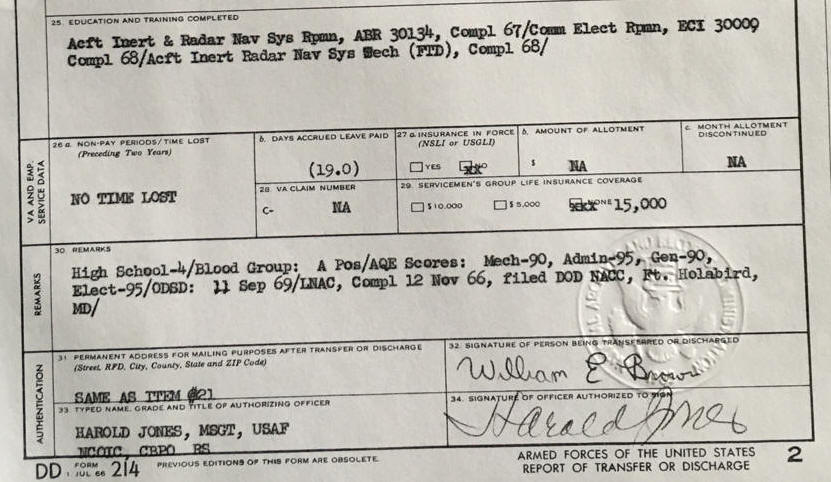 25. EDUCATION AND TRAINING COMPLETED
Acft Inert & Radar Nav Sys Rpmn, ABR 30134, Compl 67/Comm Elect Rpmn, ECI 30009
Compl 68/Acft Inert Radar Nav Sys Tech (FTD), Compl 68/
VA AND EMP. SERVICE DATA
26 a. NON-PAY PERIODS/TIME LOST
(Preceding Two Years)
NO TIME LOST
b. DAYS ACCRUED LEAVE PAID
(19.0)
27 a. INSURANCE IN FORCE
(NSLI or USGLI)
YES NO
b. AMOUNT OF ALLOTMENT
$ NA
c. MONTH ALLOTMENT
DISCONTINUED
NA
28. VA CLAIM NUMBER
C- NA
29. SERVICEMEN'S GROUP LIFE INSURANCE COVERAGE
$10,000 $5,000 NONE 15,000
REMARKS
30. REMARKS
High School-4/Blood Group: A Pos/AQE Scores: Mech-90, Admin-95, Gen-90,
Elect-95/ODSD: 11 Sep 69/LNAC, Compl 12 Nov 66, filed DOD NACC, Ft. Holabird,
MD/
AUTHENTICATION
31. PERMANENT ADDRESS FOR MAILING PURPOSES AFTER TRANSFER OR DISCHARGE
(Street, RFD, City, County, State and ZIP Code)
SAME AS ITEM #21
32. SIGNATURE OF PERSON BEING TRANSFERRED OR DISCHARGED
William E Brown
33. TYPED NAME, GRADE AND TITLE OF AUTHORIZING OFFICER
HAROLD JONES, MSGT, USAF
NCOIC, CBPO RS
34. SIGNATURE OF OFFICER AUTHORIZED TO SIGN
Harold Jones
DD FORM 1 JUL 66 214 PREVIOUS EDITIONS OF THIS FORM ARE OBSOLETE.
ARMED FORCES OF THE UNITED STATES
REPORT OF TRANSFER OR DISCHARGE
2